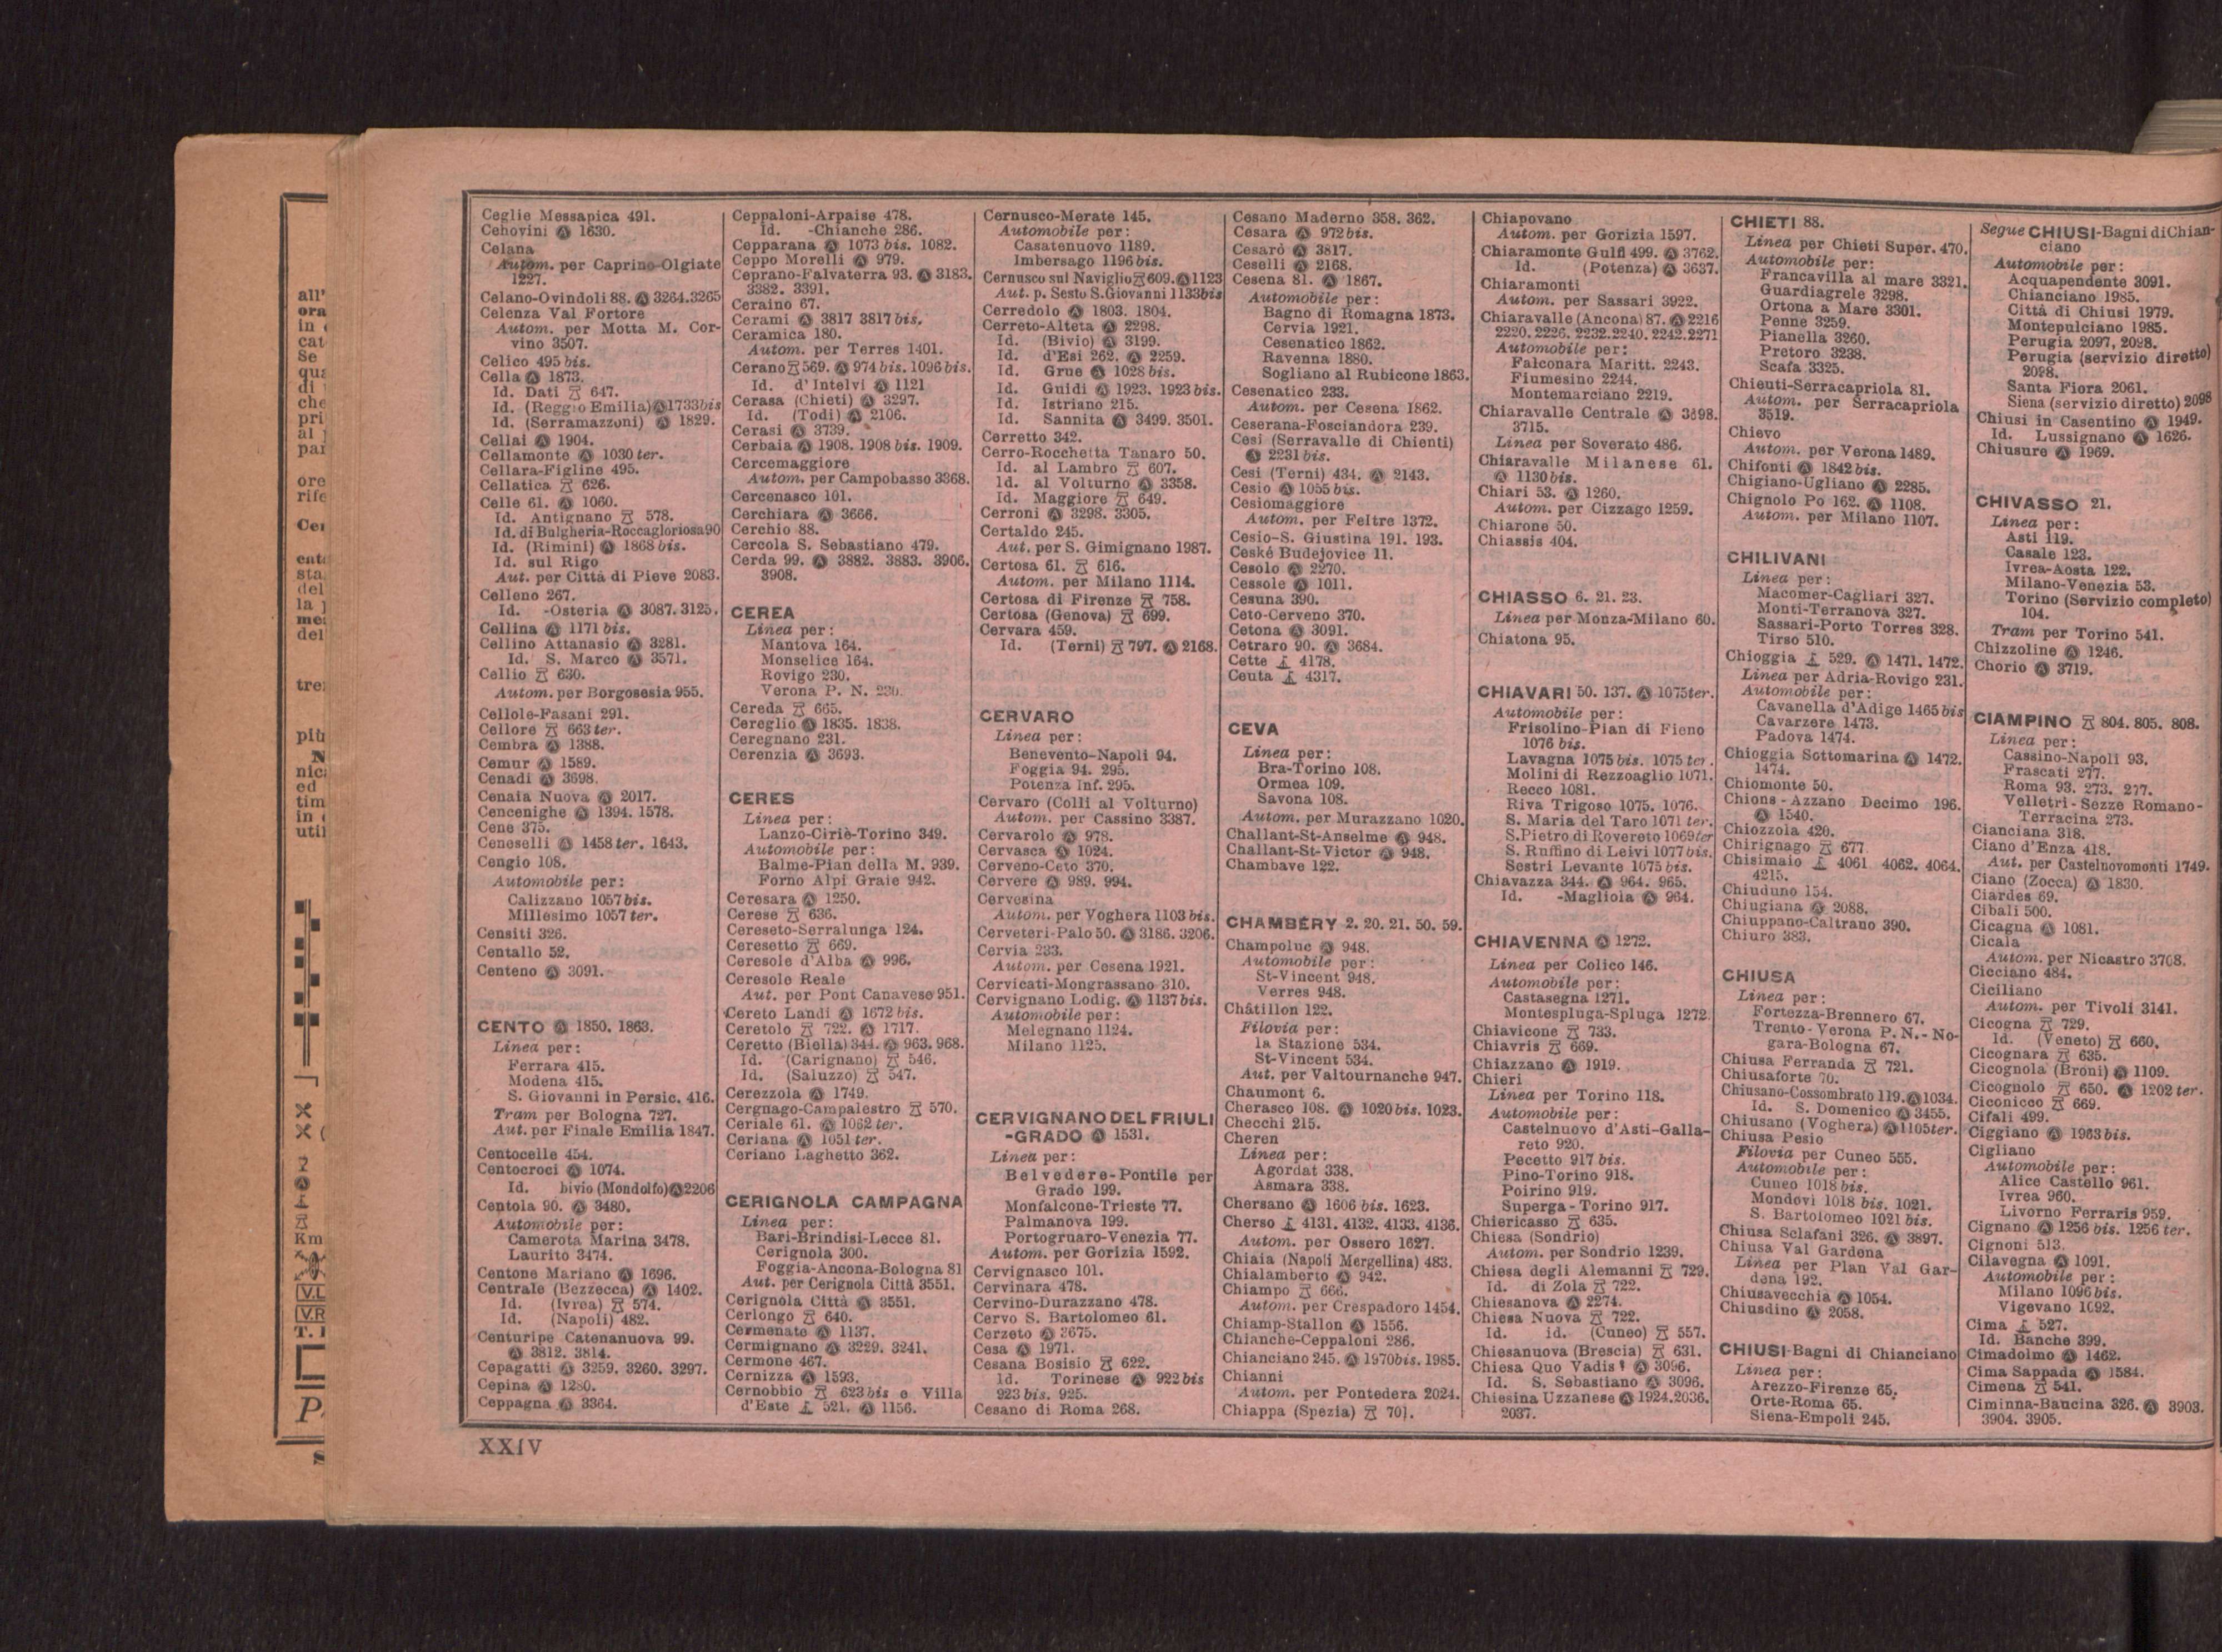 Ceglie Messapica 491.
Cehovini Ⓐ 1630.
Celana
Autom. per Caprino-Olgiate
1227.
Celano-Ovindoli 88. Ⓐ 3264.3265
Celenza Val Fortore
Autom. per Motta M. Cor-
vino 3507.
Celico 495 bis.
Cella Ⓐ 1873.
Id. Dati 647.
Id. (Reggio Emilia) Ⓐ 1733bis
Id. (Serramazzoni) Ⓐ 1829.
Cellai Ⓐ 1904.
Cellamonte Ⓐ 1030 ter.
Cellara-Figline 495.
Cellatica 626.
Celle 61. Ⓐ 1060.
Id. Antignano 578.
Id. di Bulgheria-Roccagloriosa 90
Id. (Rimini) Ⓐ 1868 bis.
Id. sul Rigo
Aut. per Città di Pieve 2083.
Celleno 267.
Id. -Osteria Ⓐ 3087. 3125.
Cellina Ⓐ 1171 bis.
Cellino Attanasio Ⓐ 3281.
Id. S. Marco Ⓐ 3571.
Cellio 630.
Autom. per Borgosesia 955.
Cellole-Fasani 291.
Cellore 663 ter.
Cembra Ⓐ 1388.
Cemur Ⓐ 1589.
Cenadi Ⓐ 3698.
Cenaia Nuova Ⓐ 2017.
Cencenighe Ⓐ 1394. 1578.
Cene 375.
Ceneselli Ⓐ 1458 ter. 1643.
Cengio 108.
Automobile per:
Calizzano 1057 bis.
Millesimo 1057 ter.
Censiti 326.
Centallo 52.
Centeno Ⓐ 3091.
CENTO Ⓐ 1850. 1863.
Linea per:
Ferrara 415.
Modena 415.
S. Giovanni in Persic. 416.
Tram per Bologna 727.
Aut. per Finale Emilia 1847.
Centocelle 454.
Centocroci Ⓐ 1074.
Id. bivio (Mondolfo) Ⓐ 2206
Centola 90. Ⓐ 3480.
Automobile per:
Camerota Marina 3478.
Laurito 3474.
Centone Mariano Ⓐ 1696.
Centrale (Bezzecca) Ⓐ 1402.
Id. (Ivrea) 574.
Id. (Napoli) 482.
Centuripe Catenanuova 99.
Ⓐ 3812. 3814.
Cepagatti Ⓐ 3259. 3260. 3297.
Cepina Ⓐ 1280.
Ceppagna Ⓐ 3364.
Ceppaloni-Arpaise 478.
Id. -Chianche 286.
Cepparana Ⓐ 1073 bis. 1082.
Ceppo Morelli Ⓐ 979.
Ceprano-Falvaterra 93. Ⓐ 3183.
3382. 3391.
Ceraino 67.
Cerami Ⓐ 3817 3817 bis.
Ceramica 180.
Autom. per Terres 1401.
Cerano 569. Ⓐ 974 bis. 1096 bis.
Id. d'Intelvi Ⓐ 1121
Cerasa (Chieti) Ⓐ 3297.
Id. (Todi) Ⓐ 2106.
Cerasi Ⓐ 3739.
Cerbaia Ⓐ 1908. 1908 bis. 1909.
Cercemaggiore
Autom. per Campobasso 3368.
Cercenasco 101.
Cerchiara Ⓐ 3666.
Cerchio 88.
Cercola S. Sebastiano 479.
Cerda 99. Ⓐ 3882. 3883. 3906.
3908.
CEREA
Linea per:
Mantova 164.
Monselice 164.
Rovigo 230.
Verona P. N. 230.
Cereda 665.
Cereglio Ⓐ 1835. 1838.
Ceregnano 231.
Cerenzia Ⓐ 3693.
CERES
Linea per:
Lanzo-Ciriè-Torino 349.
Automobile per:
Balme-Pian della M. 939.
Forno Alpi Graie 942.
Ceresara Ⓐ 1250.
Cerese 636.
Cereseto-Serralunga 124.
Ceresetto 669.
Ceresole d'Alba Ⓐ 996.
Ceresole Reale
Aut. per Pont Canavese 951.
Cereto Landi Ⓐ 1672 bis.
Ceretolo 722. Ⓐ 1717.
Ceretto (Biella) 344. Ⓐ 963. 968.
Id. (Carignano) 546.
Id. (Saluzzo) 547.
Cerezzola Ⓐ 1749.
Cergnago-Campalestro 570.
Ceriale 61. Ⓐ 1062 ter.
Ceriana Ⓐ 1051 ter.
Ceriano Laghetto 362.
CERIGNOLA CAMPAGNA
Linea per:
Bari-Brindisi-Lecce 81.
Cerignola 300.
Foggia-Ancona-Bologna 81
Aut. per Cerignola Città 3551.
Cerignola Città Ⓐ 3551.
Cerlongo 640.
Cermenate Ⓐ 1137.
Cermignano Ⓐ 3229. 3241.
Cermone 467.
Cernizza Ⓐ 1593.
Cernobbio 623 bis e Villa
d'Este 521. Ⓐ 1156.
Cernusco-Merate 145.
Automobile per:
Casatenuovo 1189.
Imbersago 1196 bis.
Cernusco sul Naviglio 609. Ⓐ 1123
Aut. p. Sesto S. Giovanni 1133bis
Cerredolo Ⓐ 1803. 1804.
Cerreto-Alteta Ⓐ 2298.
Id. (Bivio) Ⓐ 3199.
Id. d'Esi 262. Ⓐ 2259.
Id. Grue Ⓐ 1028 bis.
Id. Guidi Ⓐ 1923. 1923 bis.
Id. Istriano 215.
Id. Sannita Ⓐ 3499. 3501.
Cerretto 342.
Cerro-Rocchetta Tanaro 50.
Id. al Lambro 607.
Id. al Volturno Ⓐ 3358.
Id. Maggiore 649.
Cerroni Ⓐ 3298. 3305.
Certaldo 245.
Aut. per S. Gimignano 1987.
Certosa 61. 616.
Autom. per Milano 1114.
Certosa di Firenze 758.
Certosa (Genova) 699.
Cervara 459.
Id. (Terni) 797. Ⓐ 2168.
CERVARO
Linea per:
Benevento-Napoli 94.
Foggia 94. 295.
Potenza Inf. 295.
Cervaro (Colli al Volturno)
Autom. per Cassino 3387.
Cervarolo Ⓐ 978.
Cervasca Ⓐ 1024.
Cerveno-Ceto 370.
Cervere Ⓐ 989. 994.
Cervesina
Autom. per Voghera 1103 bis.
Cerveteri-Palo 50. Ⓐ 3186. 3206.
Cervia 233.
Autom. per Cesena 1921.
Cervicati-Mongrassano 310.
Cervignano Lodig. Ⓐ 1137 bis.
Automobile per:
Melegnano 1124.
Milano 1125.
CERVIGNANO DEL FRIULI
-GRADO Ⓐ 1531.
Linea per:
Belvedere-Pontile per
Grado 199.
Monfalcone-Trieste 77.
Palmanova 199.
Portogruaro-Venezia 77.
Autom. per Gorizia 1592.
Cervignasco 101.
Cervinara 478.
Cervino-Durazzano 478.
Cervo S. Bartolomeo 61.
Cerzeto Ⓐ 3675.
Cesa Ⓐ 1971.
Cesana Bosisio 622.
Id. Torinese Ⓐ 922 bis
923 bis. 925.
Cesano di Roma 268.
Cesano Maderno 358. 362.
Cesara Ⓐ 972 bis.
Cesarò Ⓐ 3817.
Ceselli Ⓐ 2168.
Cesena 81. Ⓐ 1867.
Automobile per:
Bagno di Romagna 1873.
Cervia 1921.
Cesenatico 1862.
Ravenna 1880.
Sogliano al Rubicone 1863.
Cesenatico 233.
Autom. per Cesena 1862.
Ceserana-Fosciandora 239.
Cesi (Serravalle di Chienti)
Ⓐ 2231 bis.
Cesi (Terni) 434. Ⓐ 2143.
Cesio Ⓐ 1055 bis.
Cesiomaggiore
Autom. per Feltre 1372.
Cesio-S. Giustina 191. 193.
Ceské Budejovice 11.
Cesolo Ⓐ 2270.
Cessole Ⓐ 1011.
Cesuna 390.
Ceto-Cerveno 370.
Cetona Ⓐ 3091.
Cetraro 90. Ⓐ 3684.
Cette 4178.
Ceuta 4317.
CEVA
Linea per:
Bra-Torino 108.
Ormea 109.
Savona 108.
Autom. per Murazzano 1020.
Challant-St-Anselme Ⓐ 948.
Challant-St-Victor Ⓐ 948.
Chambave 122.
CHAMBÉRY 2. 20. 21. 50. 59.
Champoluc Ⓐ 948.
Automobile per:
St-Vincent 948.
Verres 948.
Châtillon 122.
Filovia per:
la Stazione 534.
St-Vincent 534.
Aut. per Valtournanche 947.
Chaumont 6.
Cherasco 108. Ⓐ 1020 bis. 1023.
Checchi 215.
Cheren
Linea per:
Agordat 338.
Asmara 338.
Chersano Ⓐ 1606 bis. 1623.
Cherso 4131. 4132. 4133. 4136.
Autom. per Ossero 1627.
Chiaia (Napoli Mergellina) 483.
Chialamberto Ⓐ 942.
Chiampo 666.
Autom. per Crespadoro 1454.
Chiamp-Stallon Ⓐ 1556.
Chianche-Ceppaloni 286.
Chianciano 245. Ⓐ 1970bis. 1985.
Chianni
Autom. per Pontedera 2024.
Chiappa (Spezia) 701.
Chiapovano
Autom. per Gorizia 1597.
Chiaramonte Gulfi 499. Ⓐ 3762.
Id. (Potenza) Ⓐ 3637.
Chiaramonti
Autom. per Sassari 3922.
Chiaravalle (Ancona) 87. Ⓐ 2216
2220. 2226. 2232. 2240. 2242. 2271
Automobile per:
Falconara Maritt. 2243.
Fiumesino 2244.
Montemarciano 2219.
Chiaravalle Centrale Ⓐ 3698.
3715.
Linea per Soverato 486.
Chiaravalle Milanese 61.
Ⓐ 1130 bis.
Chiari 53. Ⓐ 1260.
Autom. per Cizzago 1259.
Chiarone 50.
Chiassis 404.
CHIASSO 6. 21. 23.
Linea per Monza-Milano 60.
Chiatona 95.
CHIAVARI 50. 137. Ⓐ 1075ter.
Automobile per:
Frisolino-Pian di Fieno
1076 bis.
Lavagna 1075 bis. 1075 ter.
Molini di Rezzoaglio 1071.
Recco 1081.
Riva Trigoso 1075. 1076.
S. Maria del Taro 1071 ter.
S. Pietro di Rovereto 1069ter
S. Ruffino di Leivi 1077 bis.
Sestri Levante 1075 bis.
Chiavazza 344. Ⓐ 964. 965.
Id. -Magliola Ⓐ 964.
CHIAVENNA Ⓐ 1272.
Linea per Colico 146.
Automobile per:
Castasegna 1271.
Montespluga-Spluga 1272.
Chiavicone 733.
Chiavris 669.
Chiazzano Ⓐ 1919.
Chieri
Linea per Torino 118.
Automobile per:
Castelnuovo d'Asti-Galla-
reto 920.
Pecetto 917 bis.
Pino-Torino 918.
Poirino 919.
Superga - Torino 917.
Chiericasso 635.
Chiesa (Sondrio)
Autom. per Sondrio 1239.
Chiesa degli Alemanni 729.
Id. di Zola 722.
Chiesanova Ⓐ 2274.
Chiesa Nuova 722.
Id. id. (Cuneo) 557.
Chiesanuova (Brescia) 631.
Chiesa Quo Vadis? Ⓐ 3096.
Id. S. Sebastiano Ⓐ 3096.
Chiesina Uzzanese Ⓐ 1924.2036.
2037.
CHIETI 88.
Linea per Chieti Super. 470.
Automobile per:
Francavilla al mare 3321.
Guardiagrele 3298.
Ortona a Mare 3301.
Penne 3259.
Pianella 3260.
Pretoro 3238.
Scafa 3325.
Chieuti-Serracapriola 81.
Autom. per Serracapriola
3519.
Chievo
Autom. per Verona 1489.
Chifonti Ⓐ 1842 bis.
Chigiano-Ugliano Ⓐ 2285.
Chignolo Po 162. Ⓐ 1108.
Autom. per Milano 1107.
CHILIVANI
Linea per:
Macomer-Cagliari 327.
Monti-Terranova 327.
Sassari-Porto Torres 328.
Tirso 510.
Chioggia 529. Ⓐ 1471. 1472.
Linea per Adria-Rovigo 231.
Automobile per:
Cavanella d'Adige 1465 bis
Cavarzere 1473.
Padova 1474.
Chioggia Sottomarina Ⓐ 1472.
1474.
Chiomonte 50.
Chions - Azzano Decimo 196.
Ⓐ 1540.
Chiozzola 420.
Chirignago 677
Chisimaio 4061 4062. 4064.
4215.
Chiuduno 154.
Chiugiana Ⓐ 2088.
Chiuppano-Caltrano 390.
Chiuro 383.
CHIUSA
Linea per:
Fortezza-Brennero 67.
Trento - Verona P. N. - No-
gara-Bologna 67.
Chiusa Ferranda 721.
Chiusaforte 70.
Chiusano-Cossombrato 119. Ⓐ 1034.
Id. S. Domenico Ⓐ 3455.
Chiusano (Voghera) Ⓐ 1105ter.
Chiusa Pesio
Filovia per Cuneo 555.
Automobile per:
Cuneo 1018 bis.
Mondovì 1018 bis. 1021.
S. Bartolomeo 1021 bis.
Chiusa Sclafani 326. Ⓐ 3897.
Chiusa Val Gardena
Linea per Plan Val Gar-
dena 192.
Chiusavecchia Ⓐ 1054.
Chiusdino Ⓐ 2058.
CHIUSI-Bagni di Chianciano
Linea per:
Arezzo-Firenze 65.
Orte-Roma 65.
Siena-Empoli 245.
Segue CHIUSI-Bagni di Chian-
ciano
Automobile per:
Acquapendente 3091.
Chianciano 1985.
Città di Chiusi 1979.
Montepulciano 1985.
Perugia 2097, 2098.
Perugia (servizio diretto)
2098.
Santa Fiora 2061.
Siena (servizio diretto) 2098
Chiusi in Casentino Ⓐ 1949.
Id. Lussignano Ⓐ 1626.
Chiusure Ⓐ 1969.
CHIVASSO 21.
Linea per:
Asti 119.
Casale 123.
Ivrea-Aosta 122.
Milano-Venezia 53.
Torino (Servizio completo)
104.
Tram per Torino 541.
Chizzoline Ⓐ 1246.
Chorio Ⓐ 3719.
CIAMPINO 804. 805. 808.
Linea per:
Cassino-Napoli 93.
Frascati 277.
Roma 93. 273. 277.
Velletri - Sezze Romano-
Terracina 273.
Cianciana 318.
Ciano d'Enza 418.
Aut. per Castelnovomonti 1749.
Ciano (Zocca) Ⓐ 1830.
Ciardes 69.
Cibali 500.
Cicagna Ⓐ 1081.
Cicala
Autom. per Nicastro 3708.
Cicciano 484.
Ciciliano
Autom. per Tivoli 3141.
Cicogna 729.
Id. (Veneto) 660.
Cicognara 635.
Cicognola (Broni) Ⓐ 1109.
Cicognolo 650. Ⓐ 1202 ter.
Ciconicco 669.
Cifali 499.
Ciggiano Ⓐ 1963 bis.
Cigliano
Automobile per:
Alice Castello 961.
Ivrea 960.
Livorno Ferraris 959.
Cignano Ⓐ 1256 bis. 1256 ter.
Cignoni 513.
Cilavegna Ⓐ 1091.
Automobile per:
Milano 1096 bis.
Vigevano 1092.
Cima 527.
Id. Banche 399.
Cimadolmo Ⓐ 1462.
Cima Sappada Ⓐ 1584.
Cimena 541.
Ciminna-Baucina 326. Ⓐ 3903.
3904. 3905.
XXIV